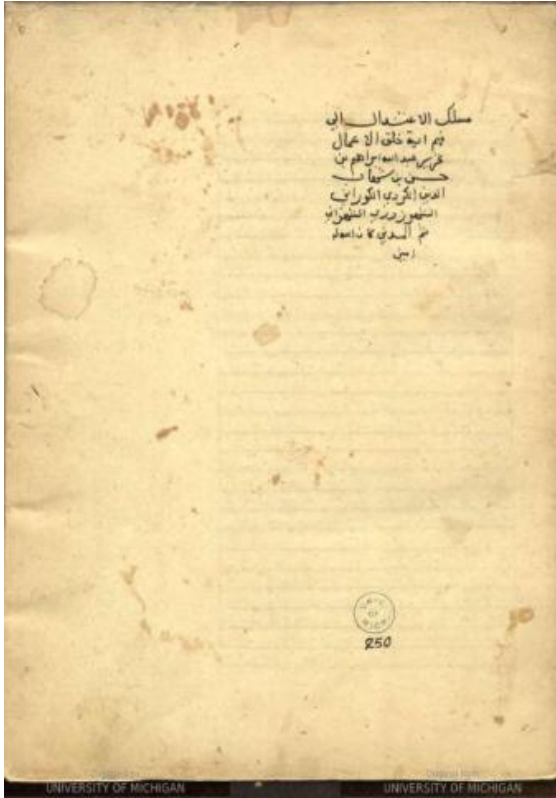 مسلك الاعتدال الى
فهم اية خلق الاعمال
تحرير عبد الله ابراهيم بن
حسن بن شهاب
الدين الكردي الكوراني
الشهرزوري الشهراني
ثم المدني كان الله له
امين
UNIV. OF MICH.
250
UNIVERSITY OF MICHIGAN
UNIVERSITY OF MICHIGAN